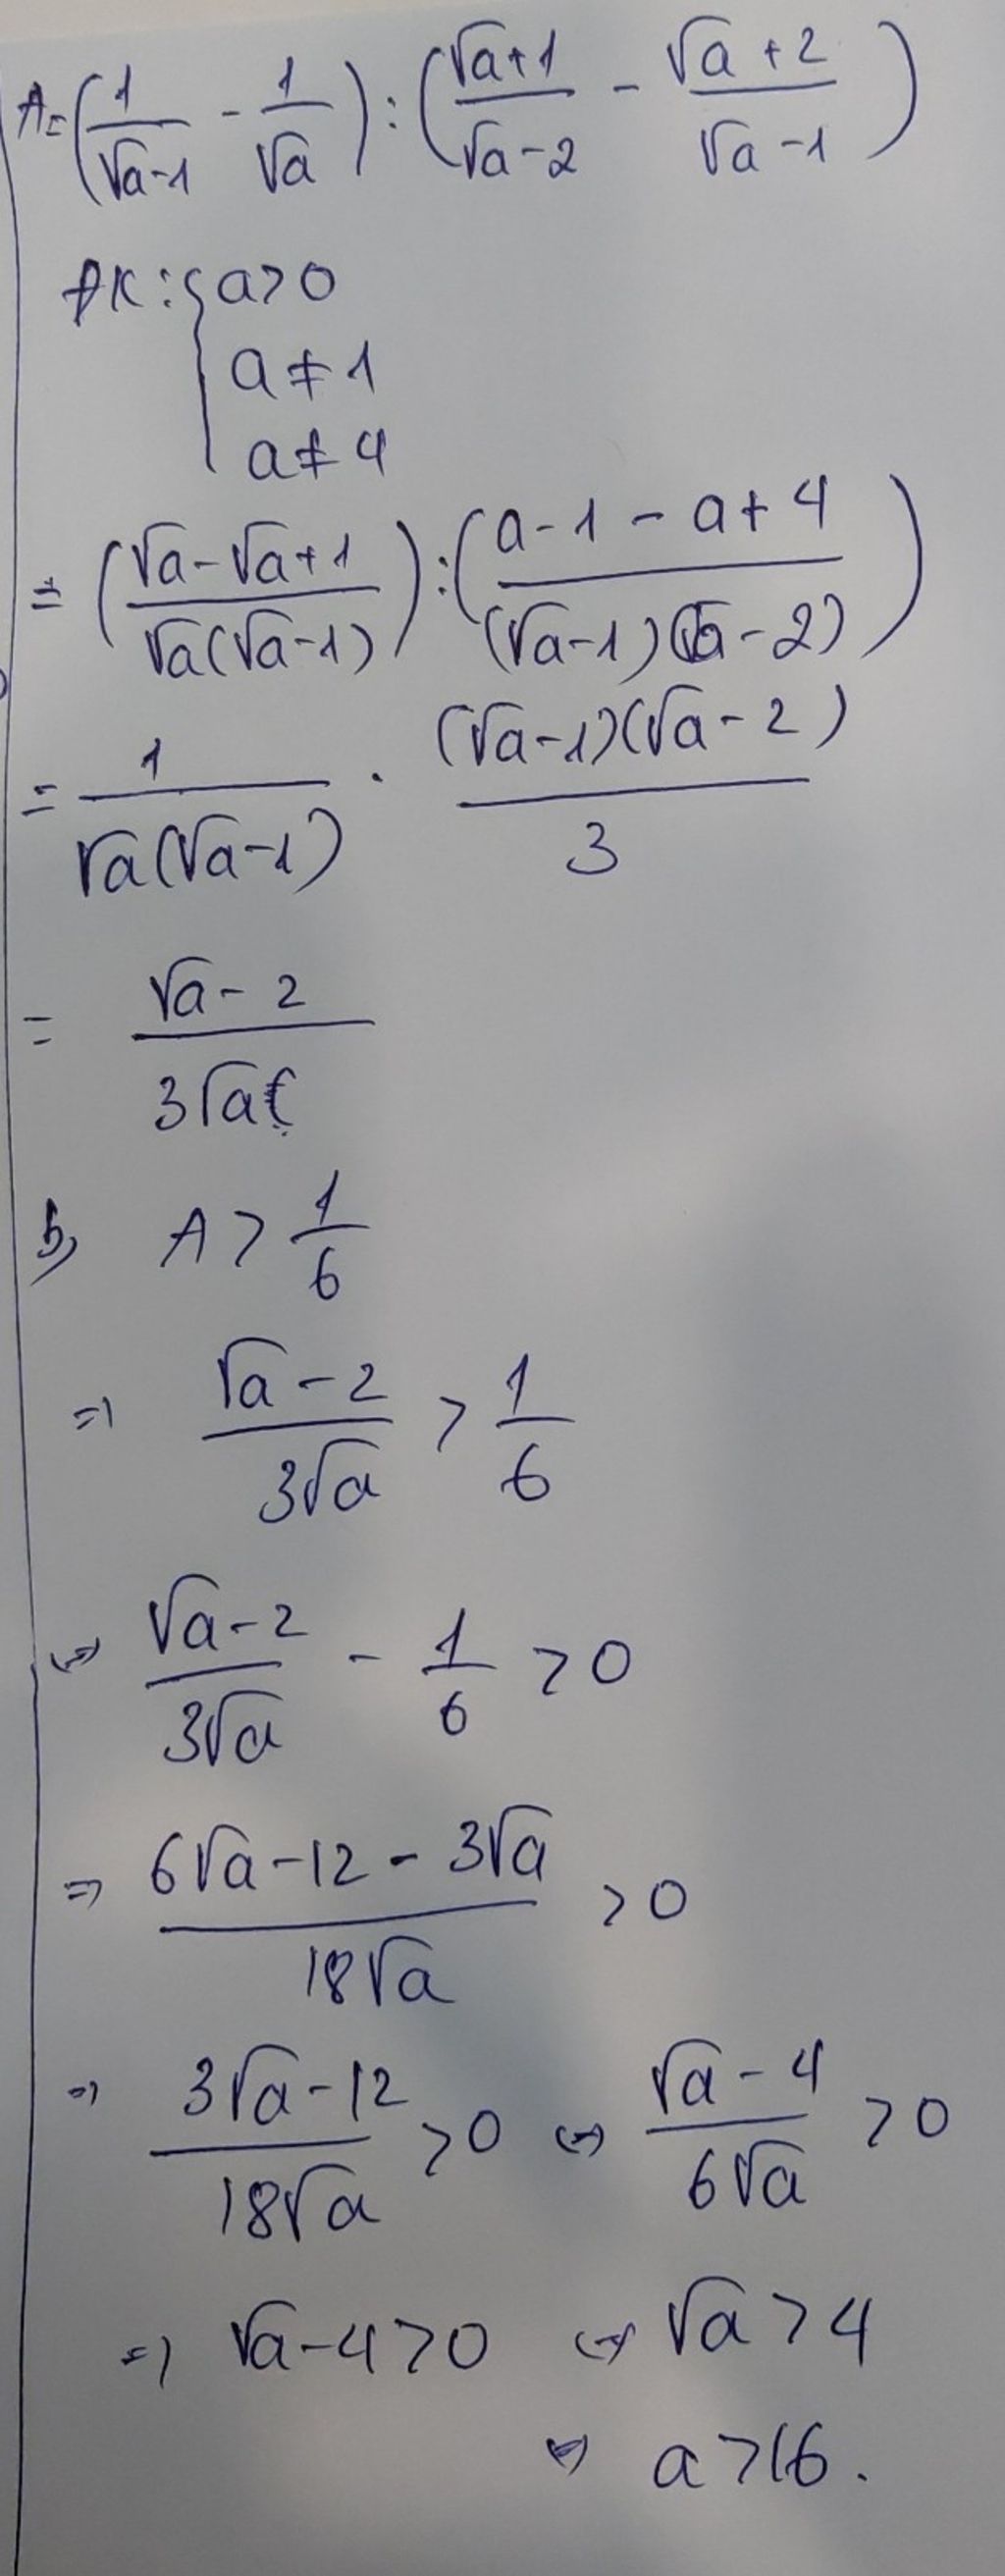 A = (1/(√a-1) - 1/√a) : ((√a+1)/(√a-2) - (√a+2)/(√a-1))
ĐK: { a>0
a≠1
a≠4
= ((√a-√a+1)/(√a(√a-1))) : ((a-1-a+4)/((√a-1)(√a-2)))
= 1/(√a(√a-1)) · ((√a-1)(√a-2))/3
= (√a-2)/(3√a)
b, A > 1/6
=> (√a-2)/(3√a) > 1/6
<=> (√a-2)/(3√a) - 1/6 > 0
=> (6√a-12-3√a)/(18√a) > 0
=> (3√a-12)/(18√a) > 0 <=> (√a-4)/(6√a) > 0
=> √a-4>0 <=> √a>4
<=> a>16.